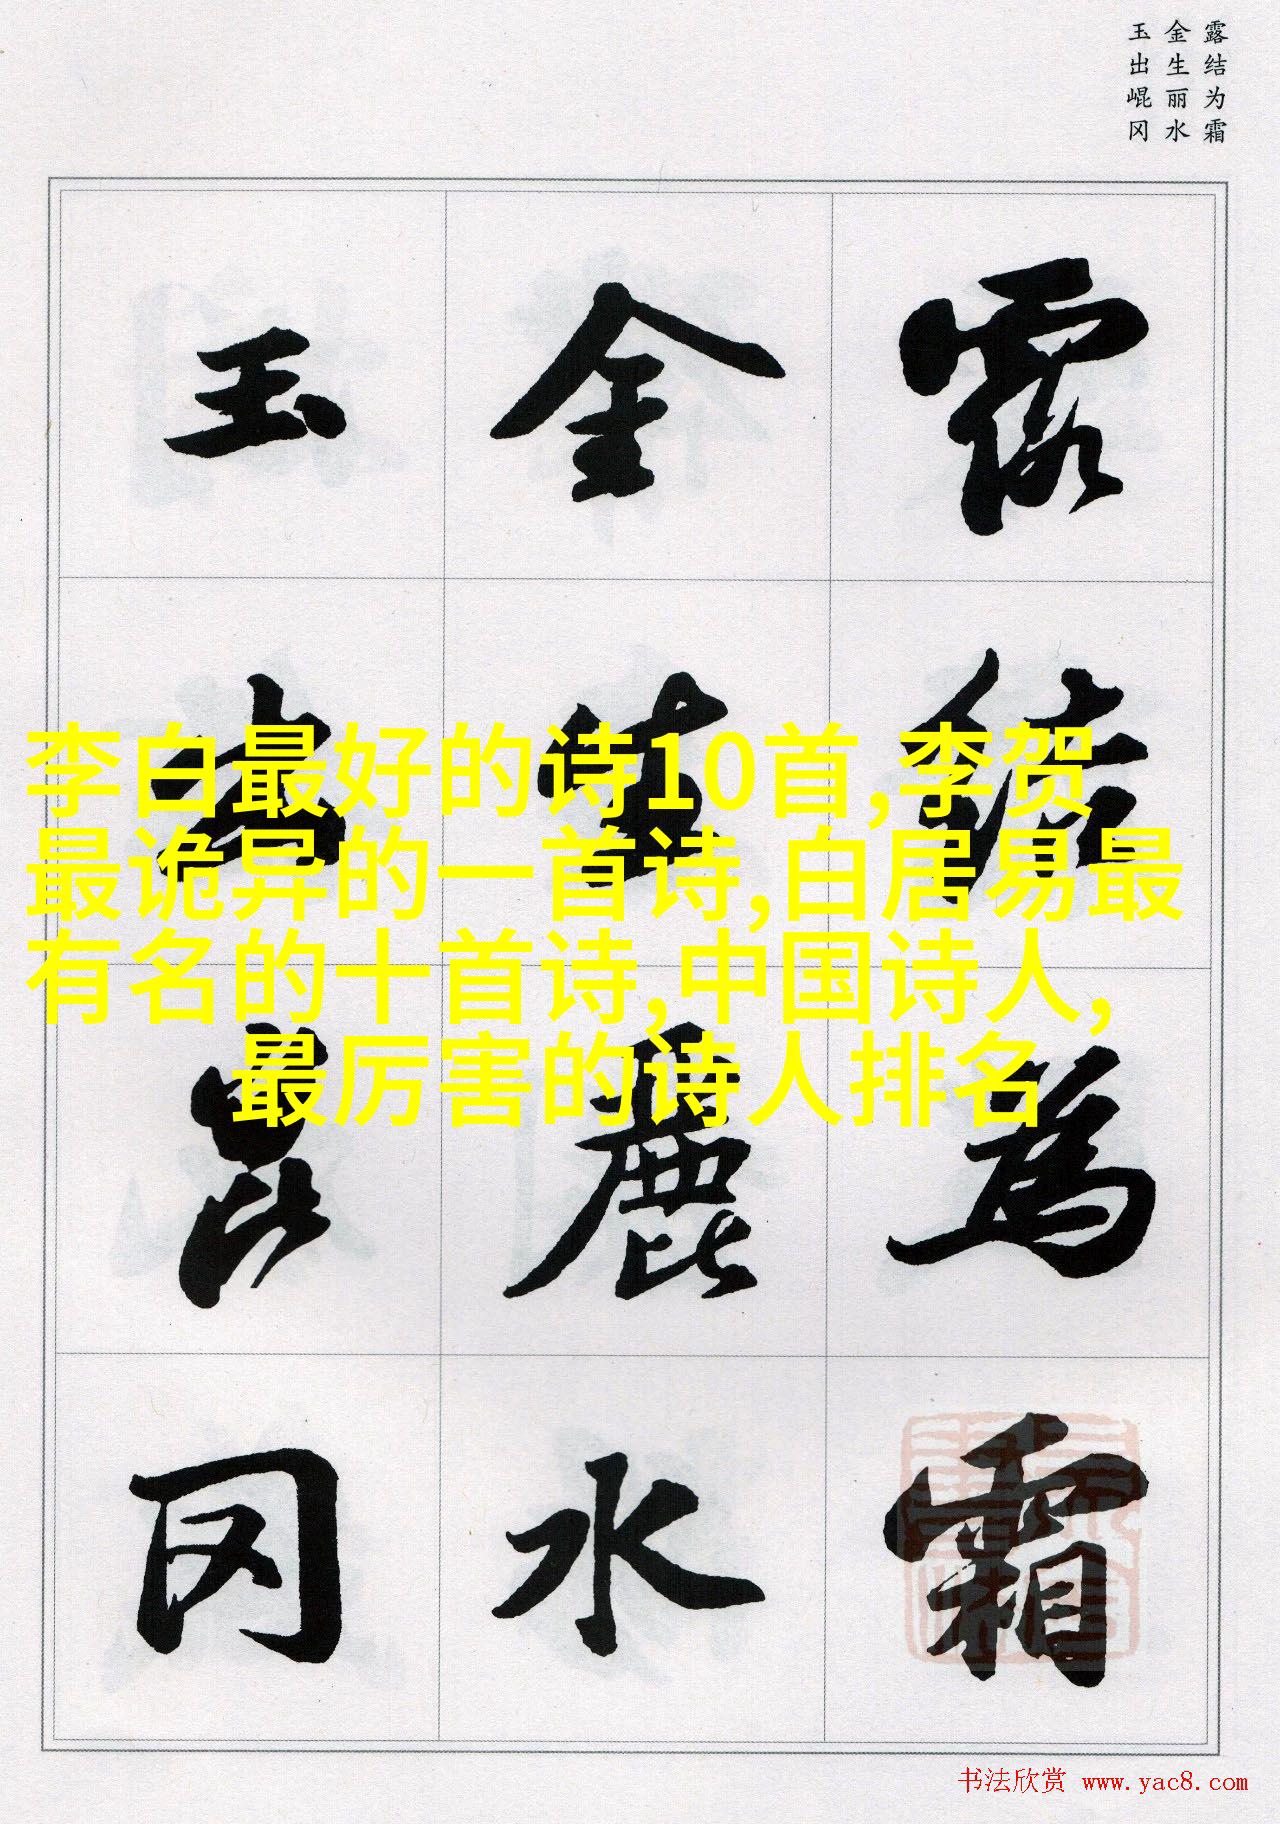 露结为霜
金生丽水
玉出崐冈
露结為霜
金生麗水
玉出崑冈
李白最好的诗10首,李贺
最诡异的一首诗,白居易最
有名的十首诗,中国诗人,
最厉害的诗人排名
书法欣赏 www.yac8.com